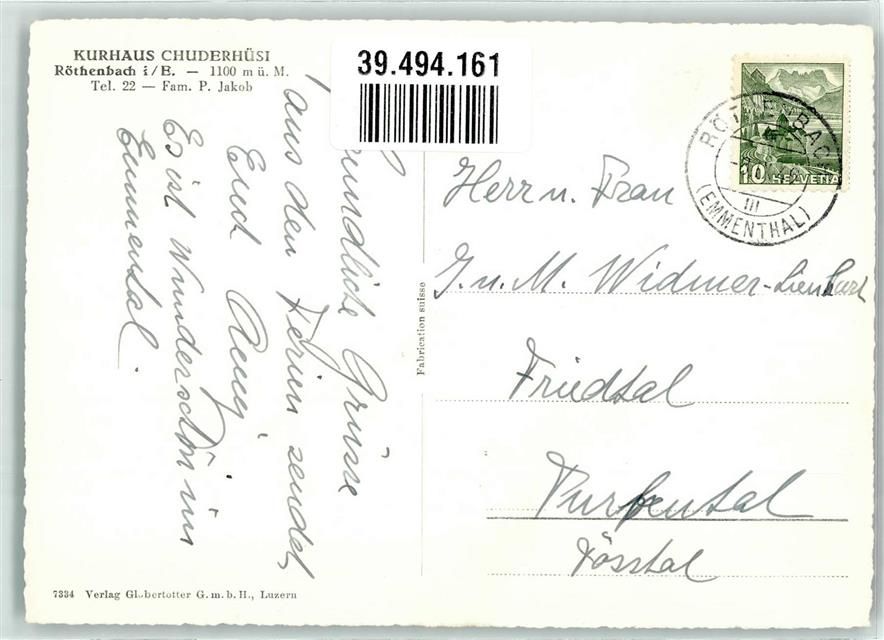 KURHAUS CHUDERHÜSI
Röthenbach i/E. — 1100 m ü. M.
Tel. 22 — Fam. P. Jakob
39.494.161
Grüsse
aus den Ferien sendet
Euch
Es ist Wunderschön im
Emmental.
Fabrication suisse
RÖTHENBACH
(EMMENTHAL)
III
10 HELVETIA
Herr u. Frau
J. u. M. Widmer-Lienhart
Friedtal
Turbental
Tösstal
7334 Verlag Globetrotter G.m.b.H., Luzern